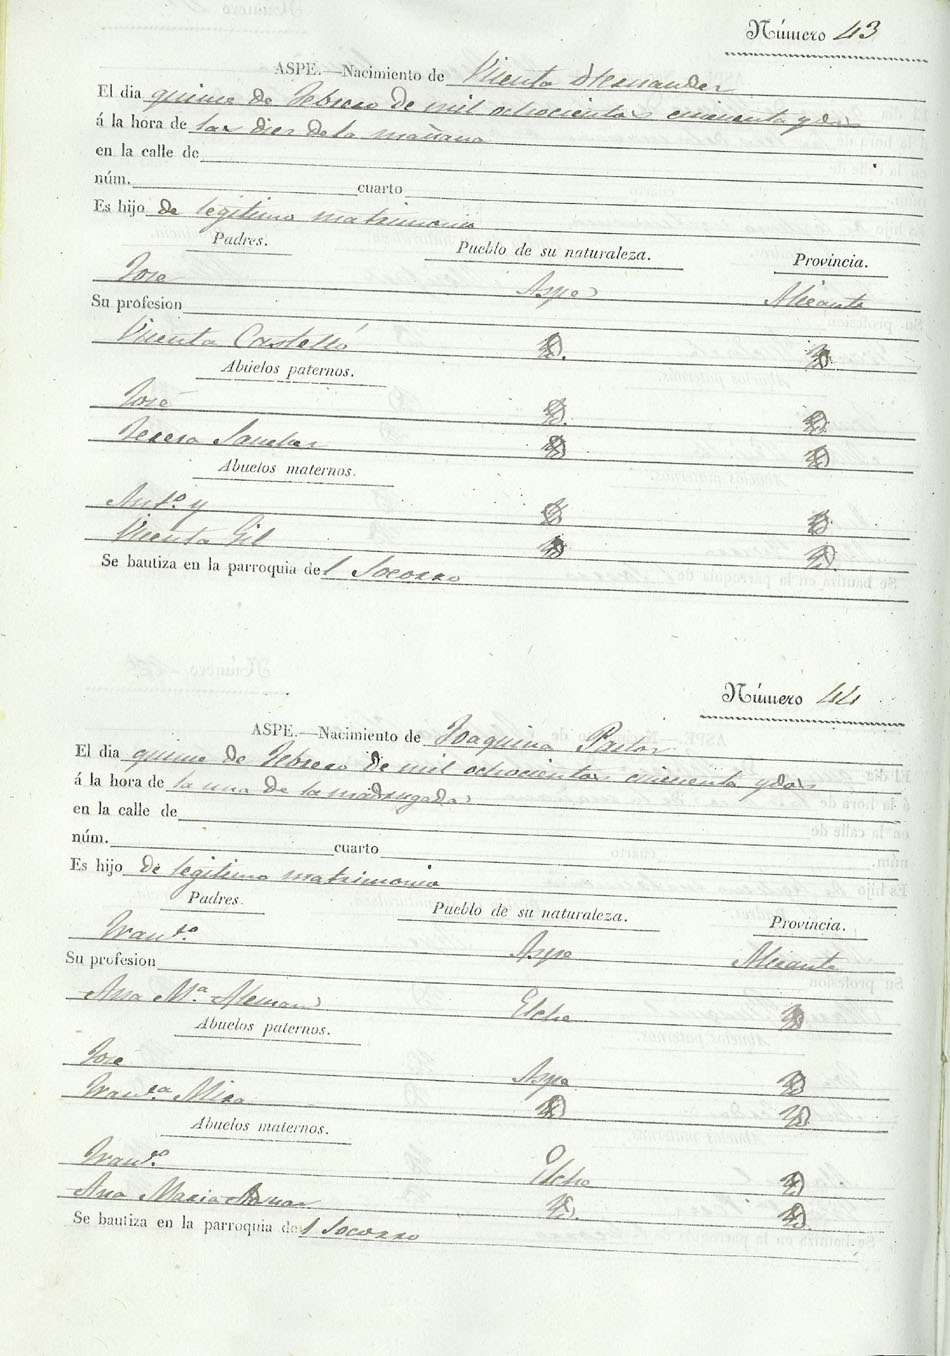 Número 43
ASPE.—Nacimiento de Vicenta Hernandez
El dia quince de Febrero de mil ochocientos cincuenta y dos
á la hora de las dies de la mañana
en la calle de
núm. cuarto
Es hijo de legitimo matrimonio
Padres. Pueblo de su naturaleza. Provincia.
Jose Aspe Alicante
Su profesion
Vicenta Castelló Id. Id.
Abuelos paternos.
José Id. Id.
Teresa Sanchez Id. Id.
Abuelos maternos.
Ant.º y Id. Id.
Vicenta Gil Id. Id.
Se bautiza en la parroquia del Socorro
Número 44
ASPE.—Nacimiento de Joaquina Pastor
El dia quince de Febrero de mil ochocientos cincuenta y dos
á la hora de la una de la madrugada
en la calle de
núm. cuarto
Es hijo de legitimo matrimonio
Padres. Pueblo de su naturaleza. Provincia.
Fran.co Aspe Alicante
Su profesion
Ana M.a Aleman Elche Id.
Abuelos paternos.
Jose Aspe Id.
Fran.ca Mira Id. Id.
Abuelos maternos.
Fran.co Elche Id.
Ana Maria Id. Id.
Se bautiza en la parroquia del Socorro